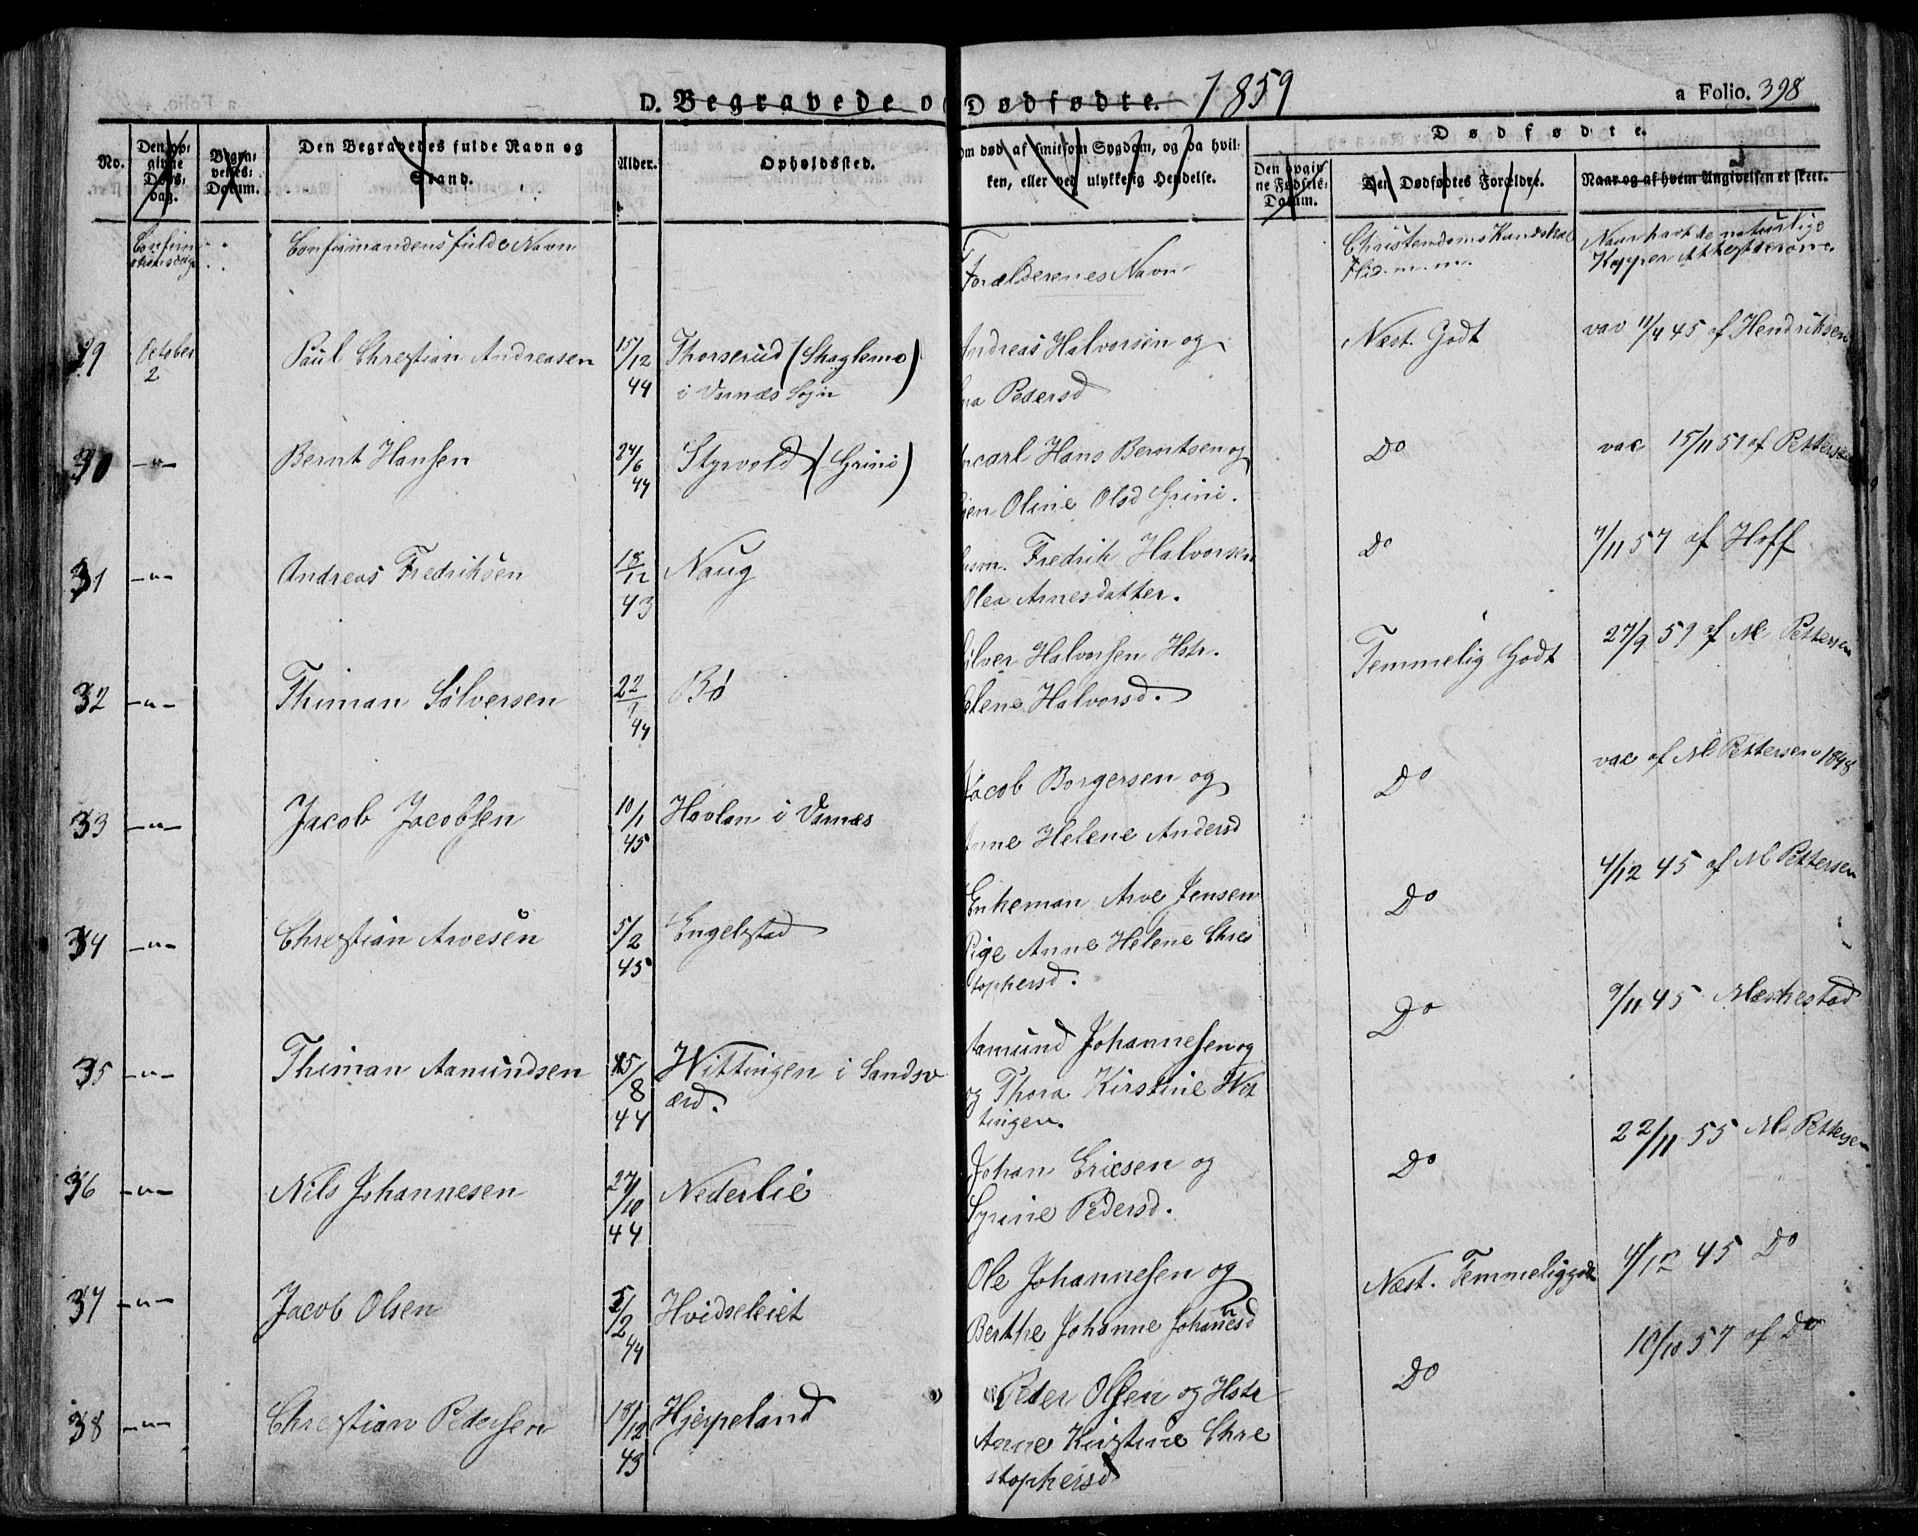 D. Begravede o Dødfødte. 1859
a Folio. 398
No.
Den op-
givne
Døds-
dag.
Begra-
velses-
Datum.
Den Begravedes fulde Navn og
Stand.
Alder.
Opholdssted.
Om død af smitsom Sygdom, og da hvil-
ken, eller ved ulykkelig Hendelse.
Dødfødte.
Den opgiv-
ne Fødsels-
Datum.
Den Dødfødtes Forældre.
Naar og af hvem Angivelsen er skeet.
Confirmandens fulde Navn
Forælderenes Navn
Christendoms Kundskab
Flid. m. m.
Naar havt de naturlige
Kopper Attesterone
29 October 2 Paul Christian Andreasen 15/12 44 Thorserud (Skaglemo)
i Varnæs Sogn
Andreas Halvorsen og
na Pedersd
Næst. Godt
vav 11/9 45 af Hendriksen
30 -"- Bernt Hansen 24/6 44 Styrvold (Grini)
ncarl Hans Berntsen og
gen Oline Olsd Grini.
Do
vac 15/11 51 af Petterse
31 -"- Andreas Fredriksen 18/12 43 Naug
usm. Fredrik Halvorsen
Olea Arnesdatter.
Do
7/11 57 af Hoff
32 -"- Thiman Sølversen 22/9 44 Bø
ølver Halvorsen Hstr.
elene Halvorsd.
Temmelig Godt
27/9 59 af M Pettersen
33 -"- Jacob Jacobsen 10/1 45 Hovlan i Varnæs
Jacob Borgersen og
Anne Helene Andersd
Do
vac af M Pettersen 1848
34 -"- Christian Arvesen 5/2 45 Engelstad
Enkeman Arve Jensen
Pige Anne Helene Chres
tophersd.
Do
4/12 45 af M Pettersen
35 -"- Thiman Aamundsen 15/8 44 Wittingen i Sandsv
ærd.
Aamund Johannesen og
og Thora Kirstine Wet
tingen.
Do
9/11 45 Mærkestad
36 -"- Nils Johannesen 27/10 44 Nederlie
Johan Ericsen og
Syrine Pedersd.
Do
22/11 55 M. Pettersen
37 -"- Jacob Olsen 5/2 44 Hvidseleiet
Ole Johannesen og
Berthe Johanne Johannesd
Næst. Temmeliggodt
4/12 45 Do
38 -"- Christian Pedersen 18/12 43 Hjerpeland
Peder Olsen og Hstr
Anne Kirstine Chre
stophersd
Do
10/10 57 af Do